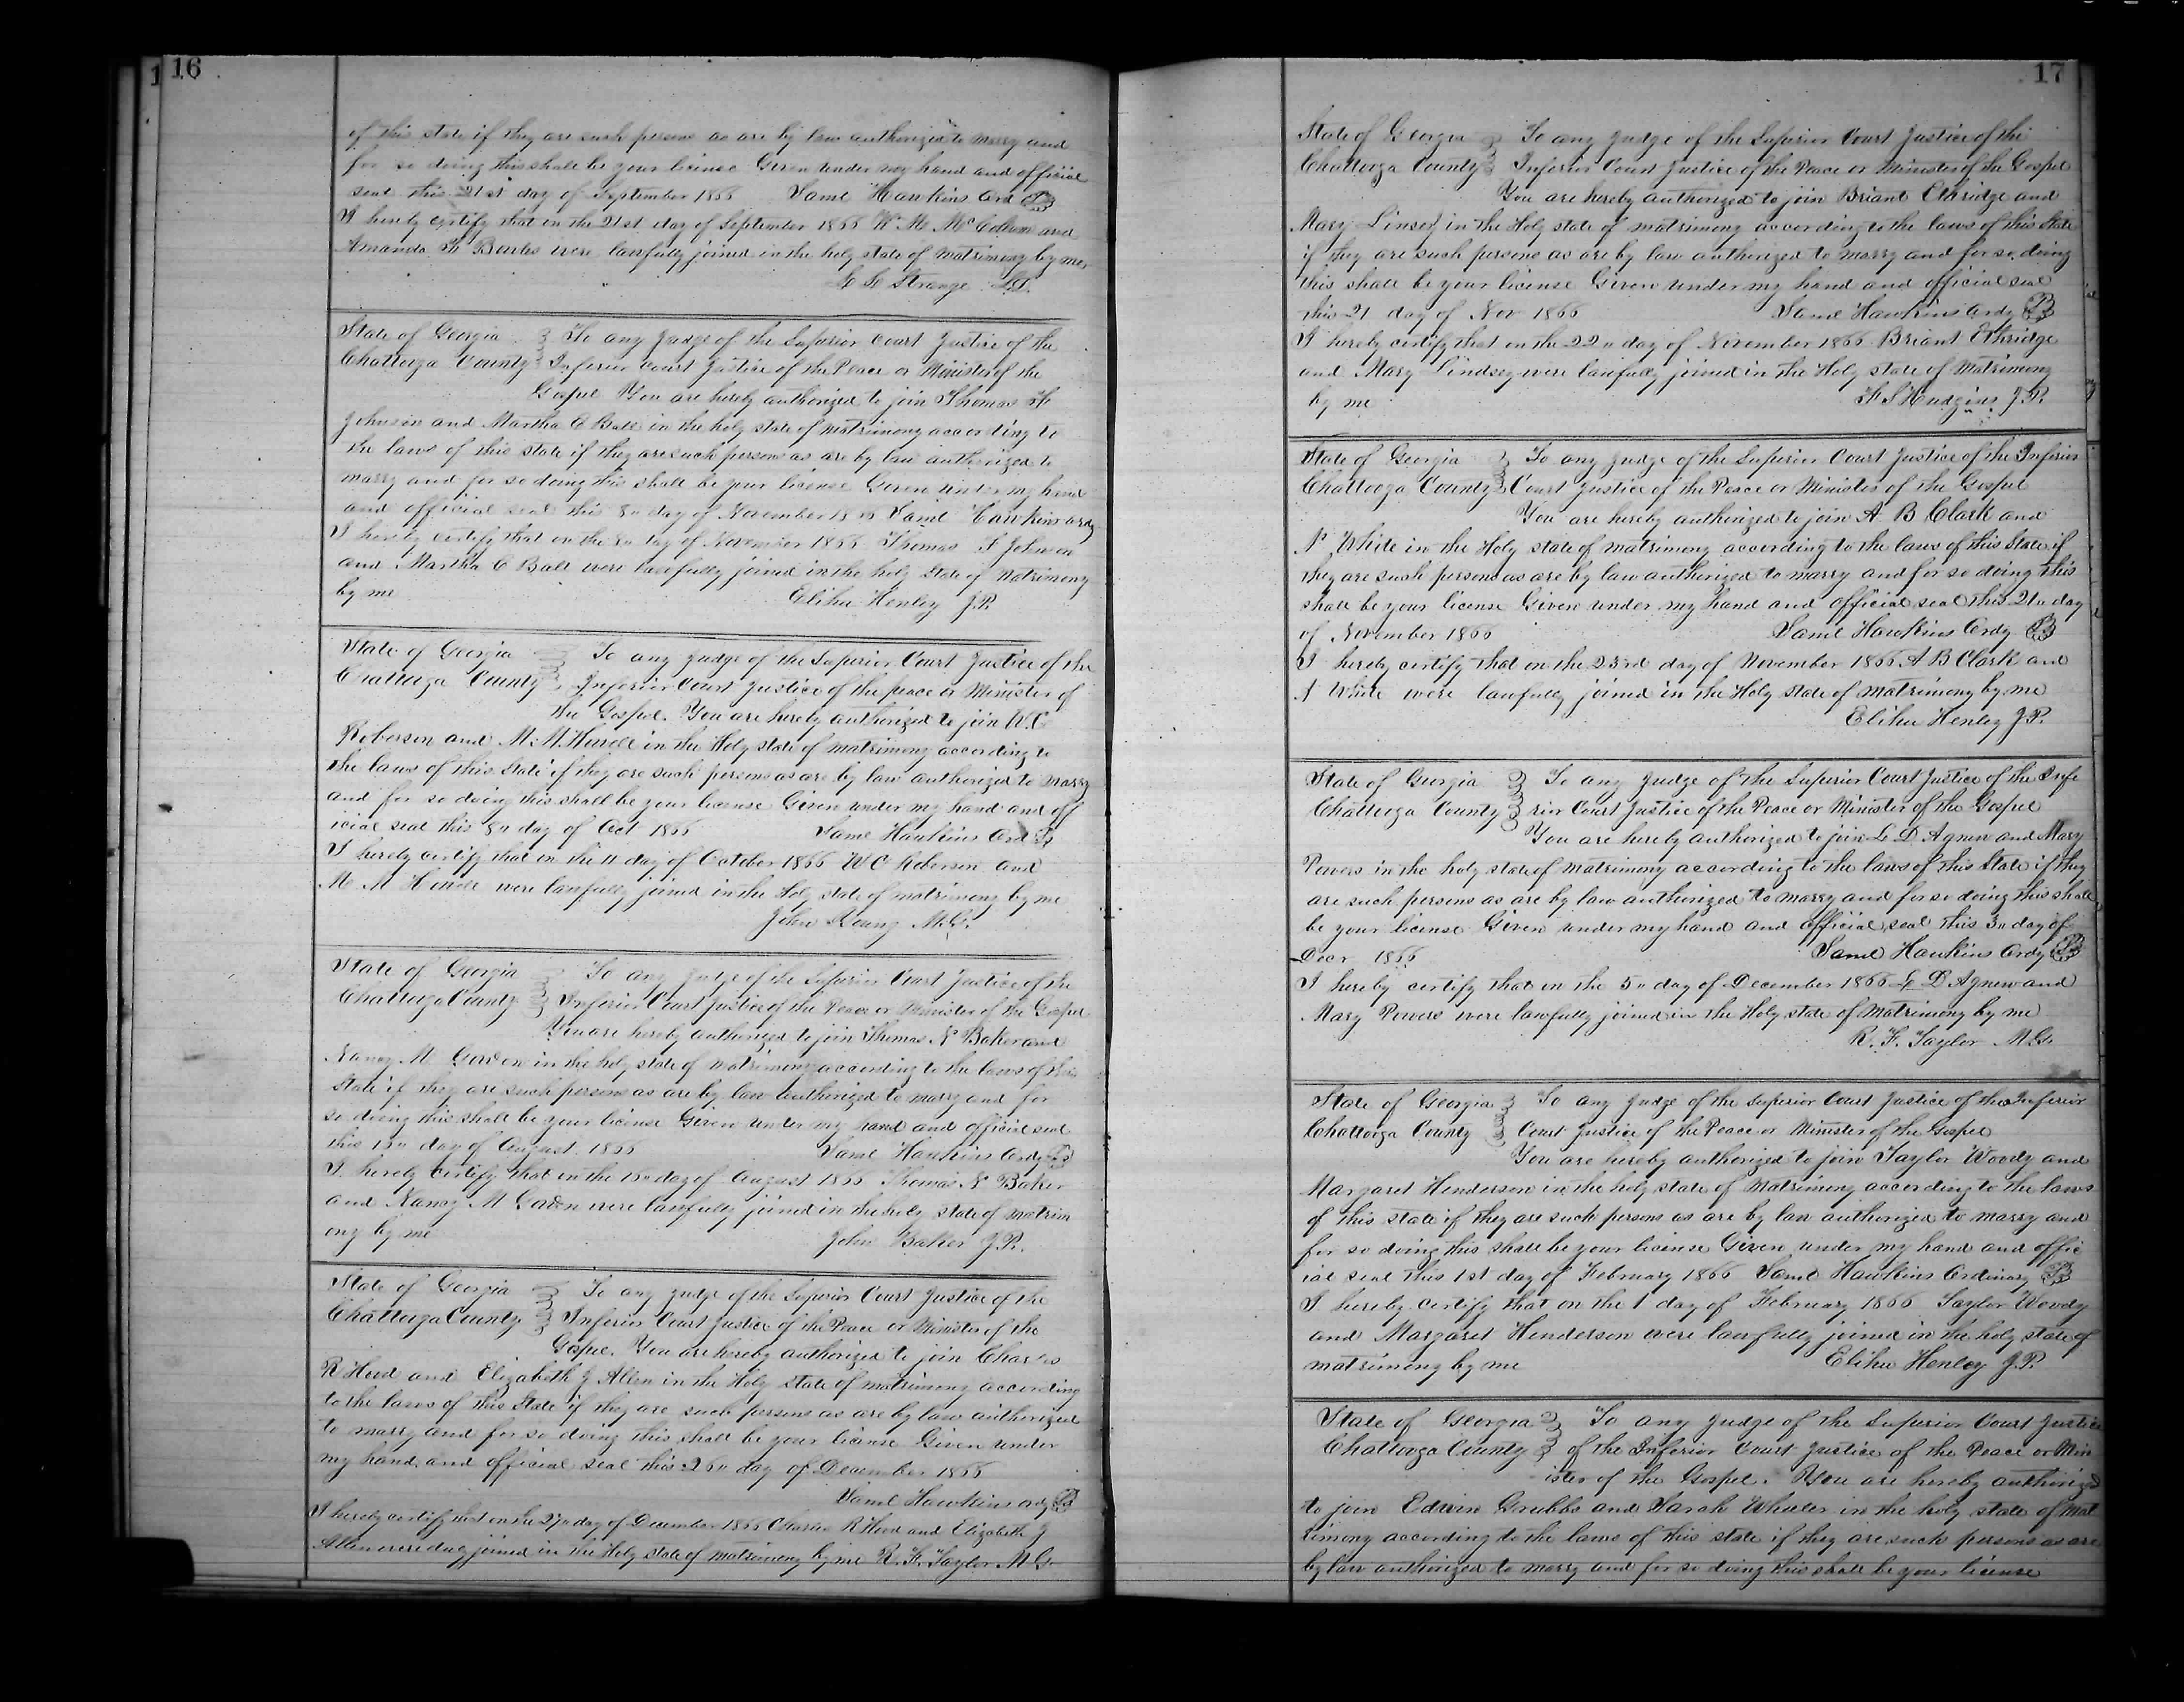 16
of this state if they are such persons as are by law authorized to marry and
for so doing this shall be your license Given under my hand and official
seal this 21st day of September 1866 Saml Hawkins Ord
I hereby certify that on the 21st day of September 1866 W M McCollum and
Amanda F were lawfully joined in the holy state of matrimony by me
Strange
State of Georgia To any Judge of the Superior Court Justice of the
Chattooga County Inferior Court Justice of the Peace or Minister of the
Gospel You are hereby authorized to join Thomas F
Johnson and Martha C Ball in the holy state of matrimony according to
the laws of this state if they are such persons as are by law authorized to
marry and for so doing this shall be your license Given under my hand
and official seal this 8" day of November 1866 Saml Hawkins ordy
I hereby certify that on the 8" day of November 1866 Thomas F Johnson
and Martha C Ball were lawfully joined in the holy State of Matrimony
by me Elihu Henley J.P.
State of Georgia To any Judge of the Superior Court Justice of the
Chattooga County Inferior Court Justice of the peace or Minister of
the Gospel. You are hereby authorized to join W.C.
Roberson and M. M. in the Holy state of matrimony according to
the laws of this State if they are such persons as are by law authorized to marry
and for so doing this shall be your license Given under my hand and off
icial seal this 8" day of Oct 1866 Saml Hawkins Ord
I hereby certify that on the 11 day of October 1866 W C Roberson and
M. M were lawfully joined in the Holy state of matrimony by me
John Young M.G.
State of Georgia To any Judge of the Superior Court Justice of the
Chattooga County Inferior Court Justice of the Peace or Minister of the Gospel
You are hereby authorized to join Thomas N Baker and
Nancy M Gordon in the holy state of matrimony according to the laws of this
State if they are such persons as are by law authorized to marry and for
so doing this shall be your license Given under my hand and official seal
this 15" day of August. 1866 Saml Hawkins Ordy
I hereby certify that on the 16" day of August 1866 Thomas N Baker
and Nancy M Gordon were lawfully joined in the holy state of matrim
ony by me John Baker J.P.
State of Georgia To any Judge of the Superior Court Justice of the
Chattooga County Inferior Court Justice of the Peace or Minister of the
Gospel. You are hereby authorized to join Charles
R Hood and Elizabeth J Allen in the Holy State of matrimony according
to the laws of this State if they are such persons as are by law authorized
to marry and for so doing this shall be your license Given under
my hand and official seal this 26" day of December 1866
Saml Hawkins ordy
I hereby certify that on the 27" day of December 1866 Charles R Hood and Elizabeth J
Allen were duly joined in the Holy state of matrimony by me R. F. Taylor M.G.
17
State of Georgia To any Judge of the Superior Court Justice of the
Chattooga County Inferior Court Justice of the Peace or Minister of the Gospel
You are hereby authorized to join Briant Eldridge and
Mary Linsey in the Holy state of matrimony according to the laws of this State
if they are such persons as are by law authorized to marry and for so doing
this shall be your license Given under my hand and official seal
this 21 day of Nov 1866 Saml Hawkins Ordy
I hereby certify that on the 22" day of November 1866 Briant Ethridge
and Mary Lindsey were lawfully joined in the Holy state of Matrimony
by me F S Hudgins J.P.
State of Georgia To any Judge of the Superior Court Justice of the Inferior
Chattooga County Court Justice of the Peace or Minister of the Gospel
You are hereby authorized to join A B Clark and
N White in the Holy state of matrimony according to the laws of this State if
they are such persons as are by law authorized to marry and for so doing this
shall be your license Given under my hand and official seal this 21" day
of November 1866 Saml Hawkins Ordy
I hereby certify that on the 23rd day of November 1866 A B Clark and
N White were lawfully joined in the Holy state of matrimony by me
Elihu Henley J.P.
State of Georgia To any Judge of the Superior Court Justice of the Infe
Chattooga County rior Court Justice of the Peace or Minister of the Gospel
You are hereby authorized to join L D Agnew and Mary
Powers in the holy state of matrimony according to the laws of this State if they
are such persons as are by law authorized to marry and for so doing this shall
be your license Given under my hand and official seal this 3" day of
Decr 1866 Saml Hawkins Ordy
I hereby certify that on the 5" day of December 1866 L D Agnew and
Mary Powers were lawfully joined in the Holy state of Matrimony by me
R. F. Taylor M.G.
State of Georgia To any Judge of the Superior Court Justice of the Inferior
Chattooga County Court Justice of the Peace or Minister of the Gospel
You are hereby authorized to join Taylor Woody and
Margaret Henderson in the holy state of Matrimony according to the laws
of this state if they are such persons as are by law authorized to marry and
for so doing this shall be your license Given under my hand and offic
ial seal this 1st day of February 1866 Saml Hawkins Ordinary
I hereby certify that on the 1 day of February 1866 Taylor Woody
and Margaret Henderson were lawfully joined in the holy state of
matrimony by me Elihu Henley J.P.
State of Georgia To any Judge of the Superior Court Justice
Chattooga County of the Inferior Court Justice of the Peace or Min
ister of the Gospel. You are hereby authorized
to join Edwin Grubbs and Sarah Wheeler in the holy state of Mat
rimony according to the laws of this state if they are such persons as are
by law authorized to marry and for so doing this shall be your license